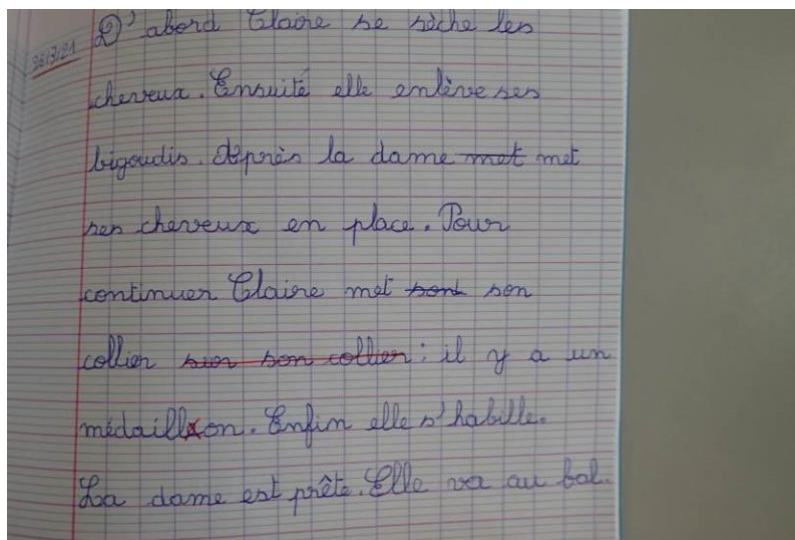 D'abord Claire se sèche les
cheveux. Ensuité elle enlève ses
bigoudis. Après la dame met met
ses cheveux en place. Pour
continuer Claire met sont son
collier sur son collier: il y a un
médaillon. Enfin elle s'habille.
La dame est prête. Elle va au bal.